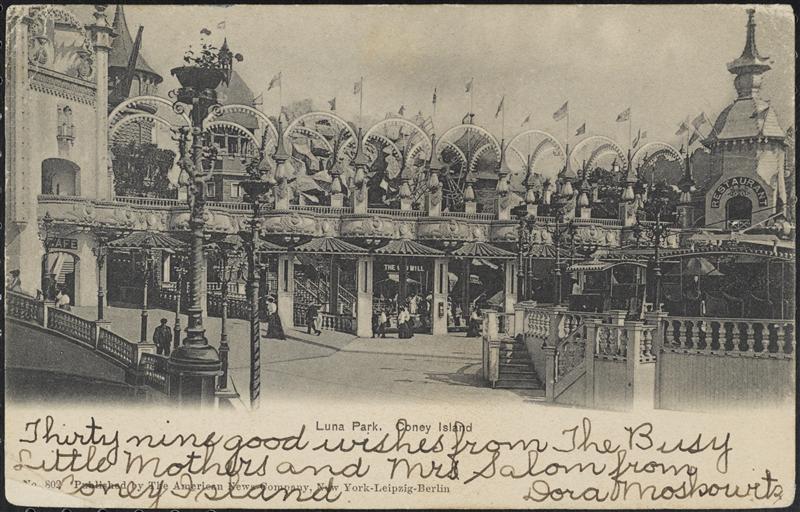 CAFE
THE OLD MILL
RESTAURANT
Luna Park. Coney Island
Thirty nine good wishes from The Busy
Little Mothers and Mrs Salom from
No. 802 Published by The American News Company, New York-Leipzig-Berlin
Coney Island Dora Moskowitz